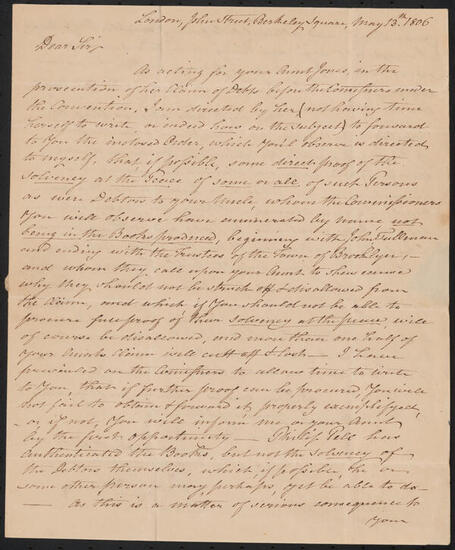 London, John Street, Berkeley Square, May 13th. 1806
Dear Sir,
As acting for your Aunt Jones, in the
prosecution of her Claim of Debts before the Comissners under
the Convention, I am directed by her, (not having time
herself to write, or indeed how on the subject) to forward
to You the inclosed Order, which You'll observe is directed
to myself, that, if possible, some direct proof of the
solvency at the Peace of some or all, of such Persons
as were Debtors to your Uncle, whom the Commissioners
You will observe have enumerated by name not
being in the Books produced, beginning with John Tullman
and ending with the Trustees of the Town of Brooklyn; –
and whom they call upon your Aunt to shew cause
why they should not be struck off & disallowed from
the Claim, and which if You should not be able to
procure full proof of their solvency at the peace, will
of course be disallowed, and more than one half of
your Aunts Claim will cutt off & lost – I have
prevailed on the Comissners to allow time to write
to You that if further proof can be procured, You will
not fail to obtain & forward it, properly exemplified,
– or if not, You will inform me or your Aunt
by the first opportunity – Philip Pell has
Authenticated the Books, but not the solvency of
the Debtors themselves, which if possible, he or
some other person may, perhaps, yet be able to do –
– As this is a matter of serious consequence to
Your